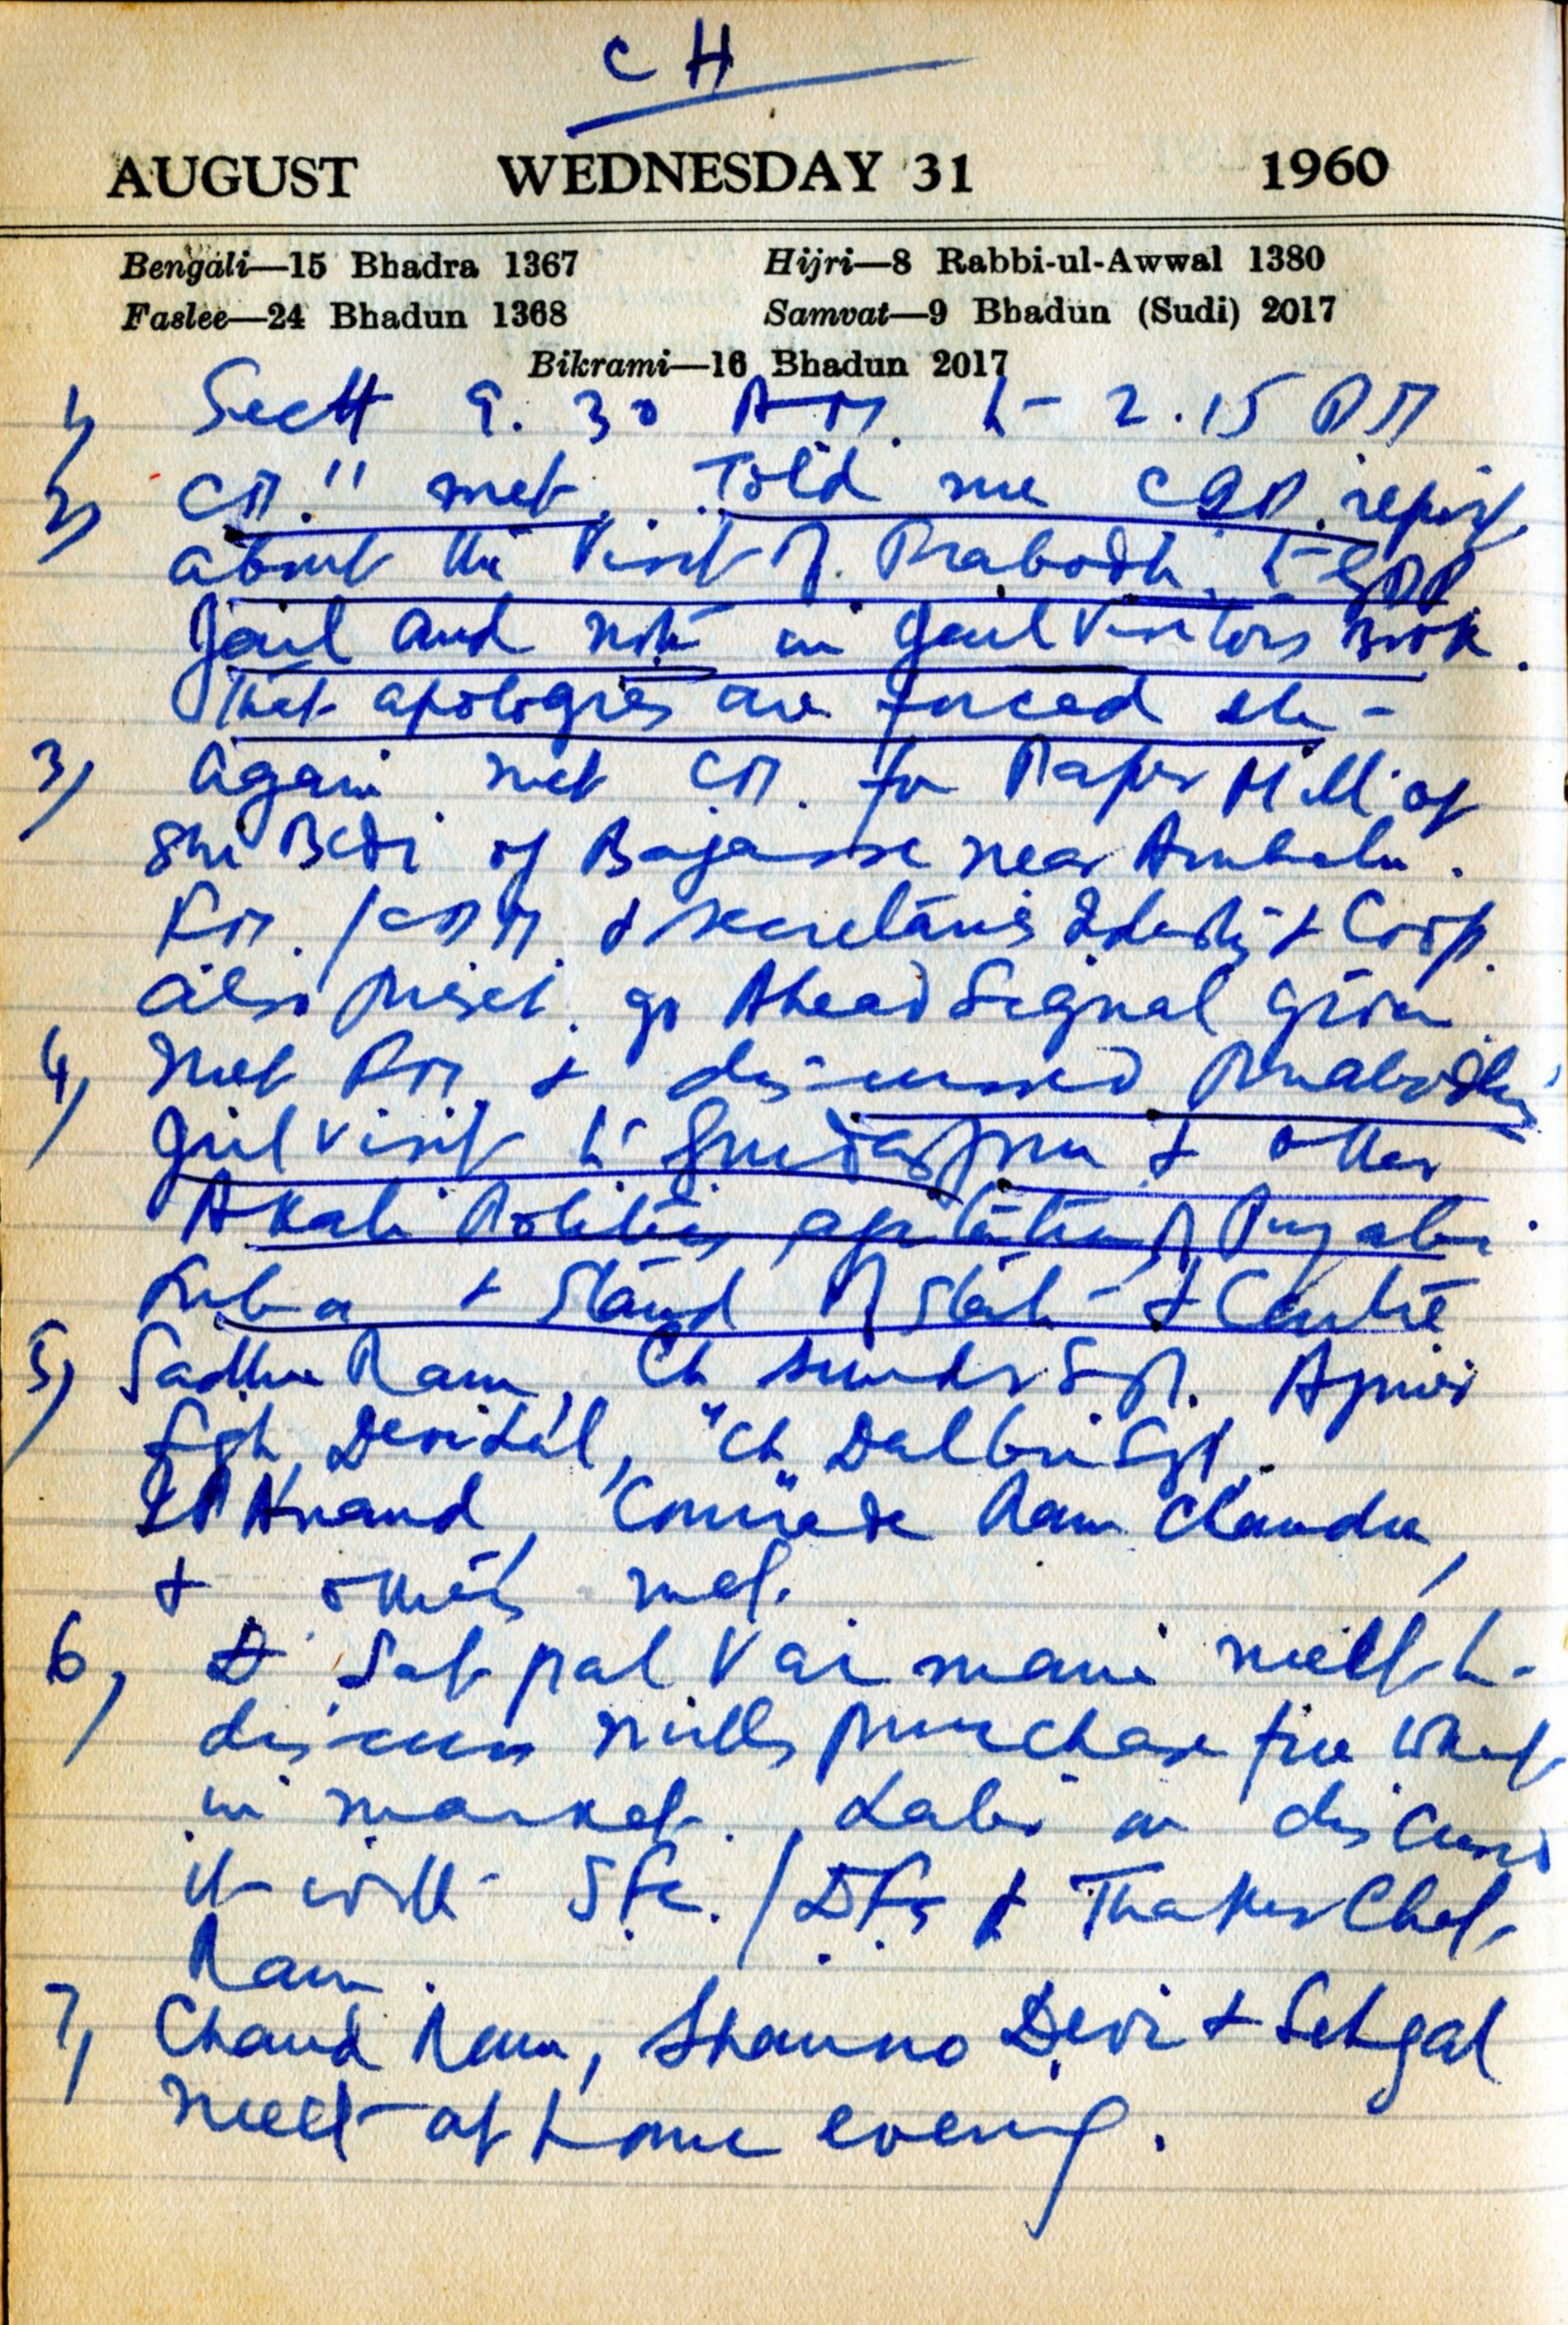 CH
AUGUST WEDNESDAY 31 1960
Bengali—15 Bhadra 1367 Hijri—8 Rabbi-ul-Awwal 1380
Faslee—24 Bhadun 1368 Samvat—9 Bhadun (Sudi) 2017
Bikrami—16 Bhadun 2017
1, Sectt 9.30 AM. to 2.15 PM
2, CM." met. Told me report
about the visit of Prabodh to
Jail and note in Jail Visitors Book.
That apologies are forced etc-
3, Again met CM. for Paper Mill of
Shri Bedi of Bagasse near Ambala.
& Secretaries & Coop.
also preset. go Ahead Signal given
4, Met & discussed Prabodh's
Jail visit to Gurdaspur & other
Akali Politics, agitation of Punjabi
Suba & Stand of State & Centre
5, Sadhu Ram, Ch Sunder Sgh.
Sgh, Devi Lal, "Ch Dalbir Sgh,
Anand, Comrade Ram Chandra,
& others met.
6, Sat pal Varmani meett to
discuss mills purchase free wheat
in market. Later on discussed
it with / DFS & Thakker
Ram.
7, Chand Ram, Shanno Devi & Sehgal
meet at home evening.